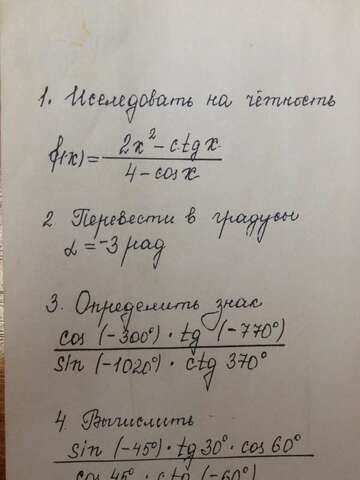 1. Исследовать на чётность
f(x) = (2x² - ctg x) / (4 - cos x)
2 Перевести в градусы
α = -3 рад
3. Определить знак
cos (-300°) · tg (-770°)
sin (-1020°) · ctg 370°
4. Вычислить
sin (-45°) · tg 30° · cos 60°
cos 45° · ctg (-60°)